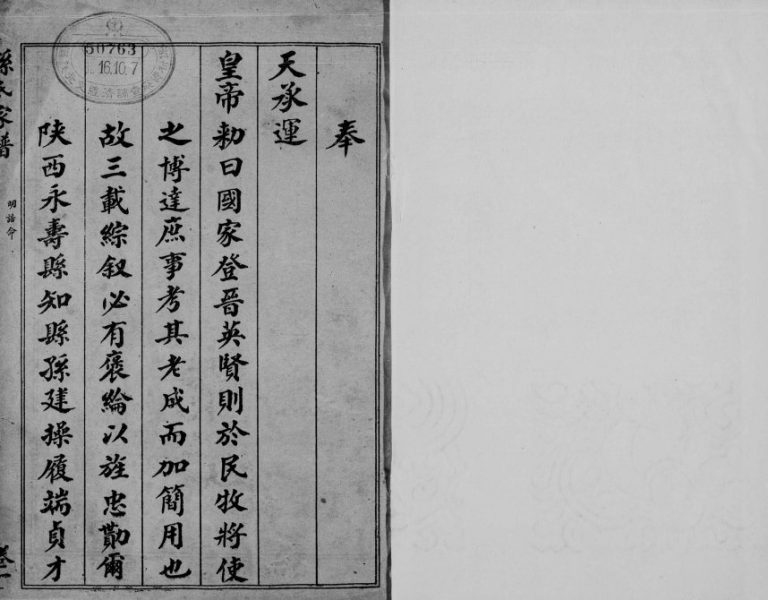 奉
天承運
皇帝勅曰國家登晉英賢則於民牧將使
之博達庶事考其老成而加簡用也
故三載綜叙必有褒綸以旌忠勤爾
陝西永壽縣知縣孫建操履端貞才
孫氏家譜
明誥命
卷一
50763
16.10.7